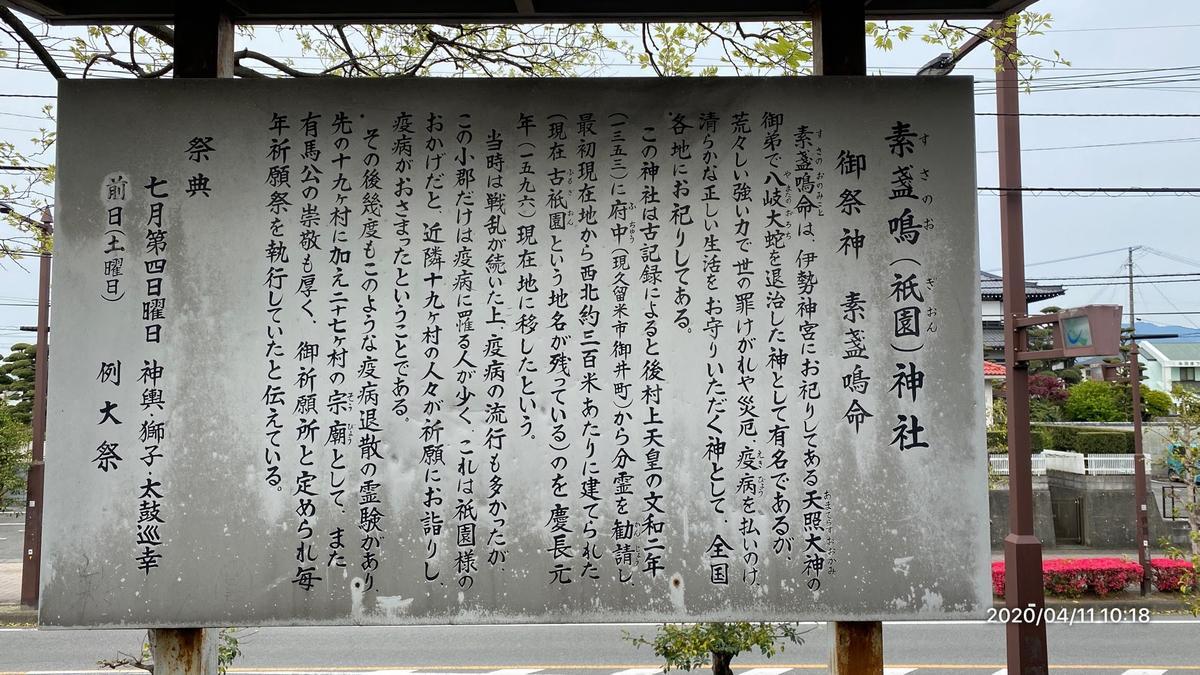 素盞鳴(祇園)神社
御祭神 素盞鳴命
素盞鳴命は、伊勢神宮にお祀りしてある天照大神の
御弟で八岐大蛇を退治した神として有名であるが、
荒々しい強い力で世の罪けがれや災厄、疫病を払いのけ、
清らかな正しい生活をお守りいただく神として、全国
各地にお祀りしてある。
この神社は古記録によると後村上天皇の文和二年
(一三五三)に府中(現久留米市御井町)から分霊を勧請し、
最初現在地から西北約三百米あたりに建てられた
(現在古祇園という地名が残っている)のを慶長元
年(一五九六)現在地に移したという。
当時は戦乱が続いた上、疫病の流行も多かったが、
この小郡だけは疫病に罹る人が少く、これは祇園様の
おかげだと、近隣十九ヶ村の人々が祈願にお詣りし、
疫病がおさまったということである。
その後幾度もこのような疫病退散の霊験があり、
先の十九ヶ村に加え二十七ヶ村の宗廟として、また
有馬公の崇敬も厚く、御祈願所と定められ毎
年祈願祭を執行していたと伝えている。
祭典
七月第四日曜日 神輿・獅子・太鼓巡幸
前日(土曜日) 例大祭
2020/04/11 10:18